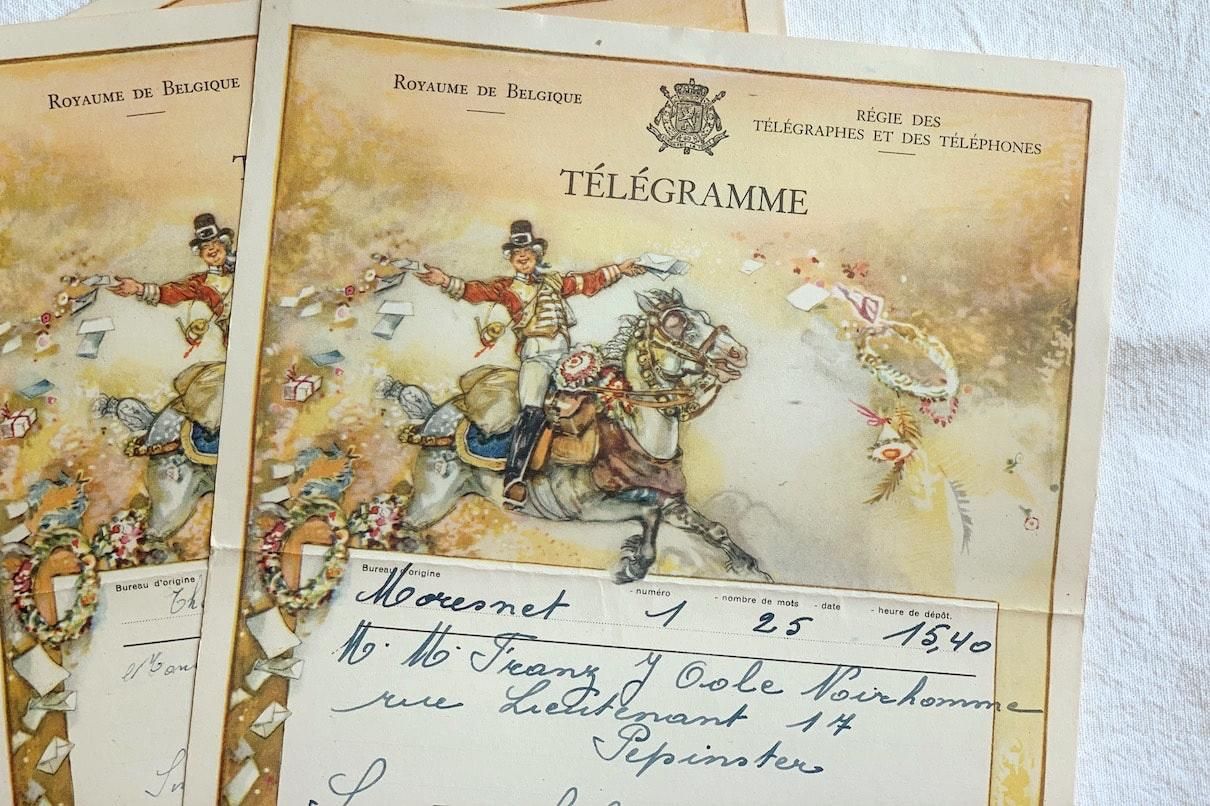 ROYAUME DE BELGIQUE
ROYAUME DE BELGIQUE
RÉGIE DES
TÉLÉGRAPHES ET DES TÉLÉPHONES
TÉLÉGRAMME
Bureau d'origine
Bureau d'origine - numéro - nombre de mots - date - heure de dépôt.
Moresnet 1 25 15,40
M. M. Franz J Oole Noirhomme
rue Lieutenant 17
Pepinster